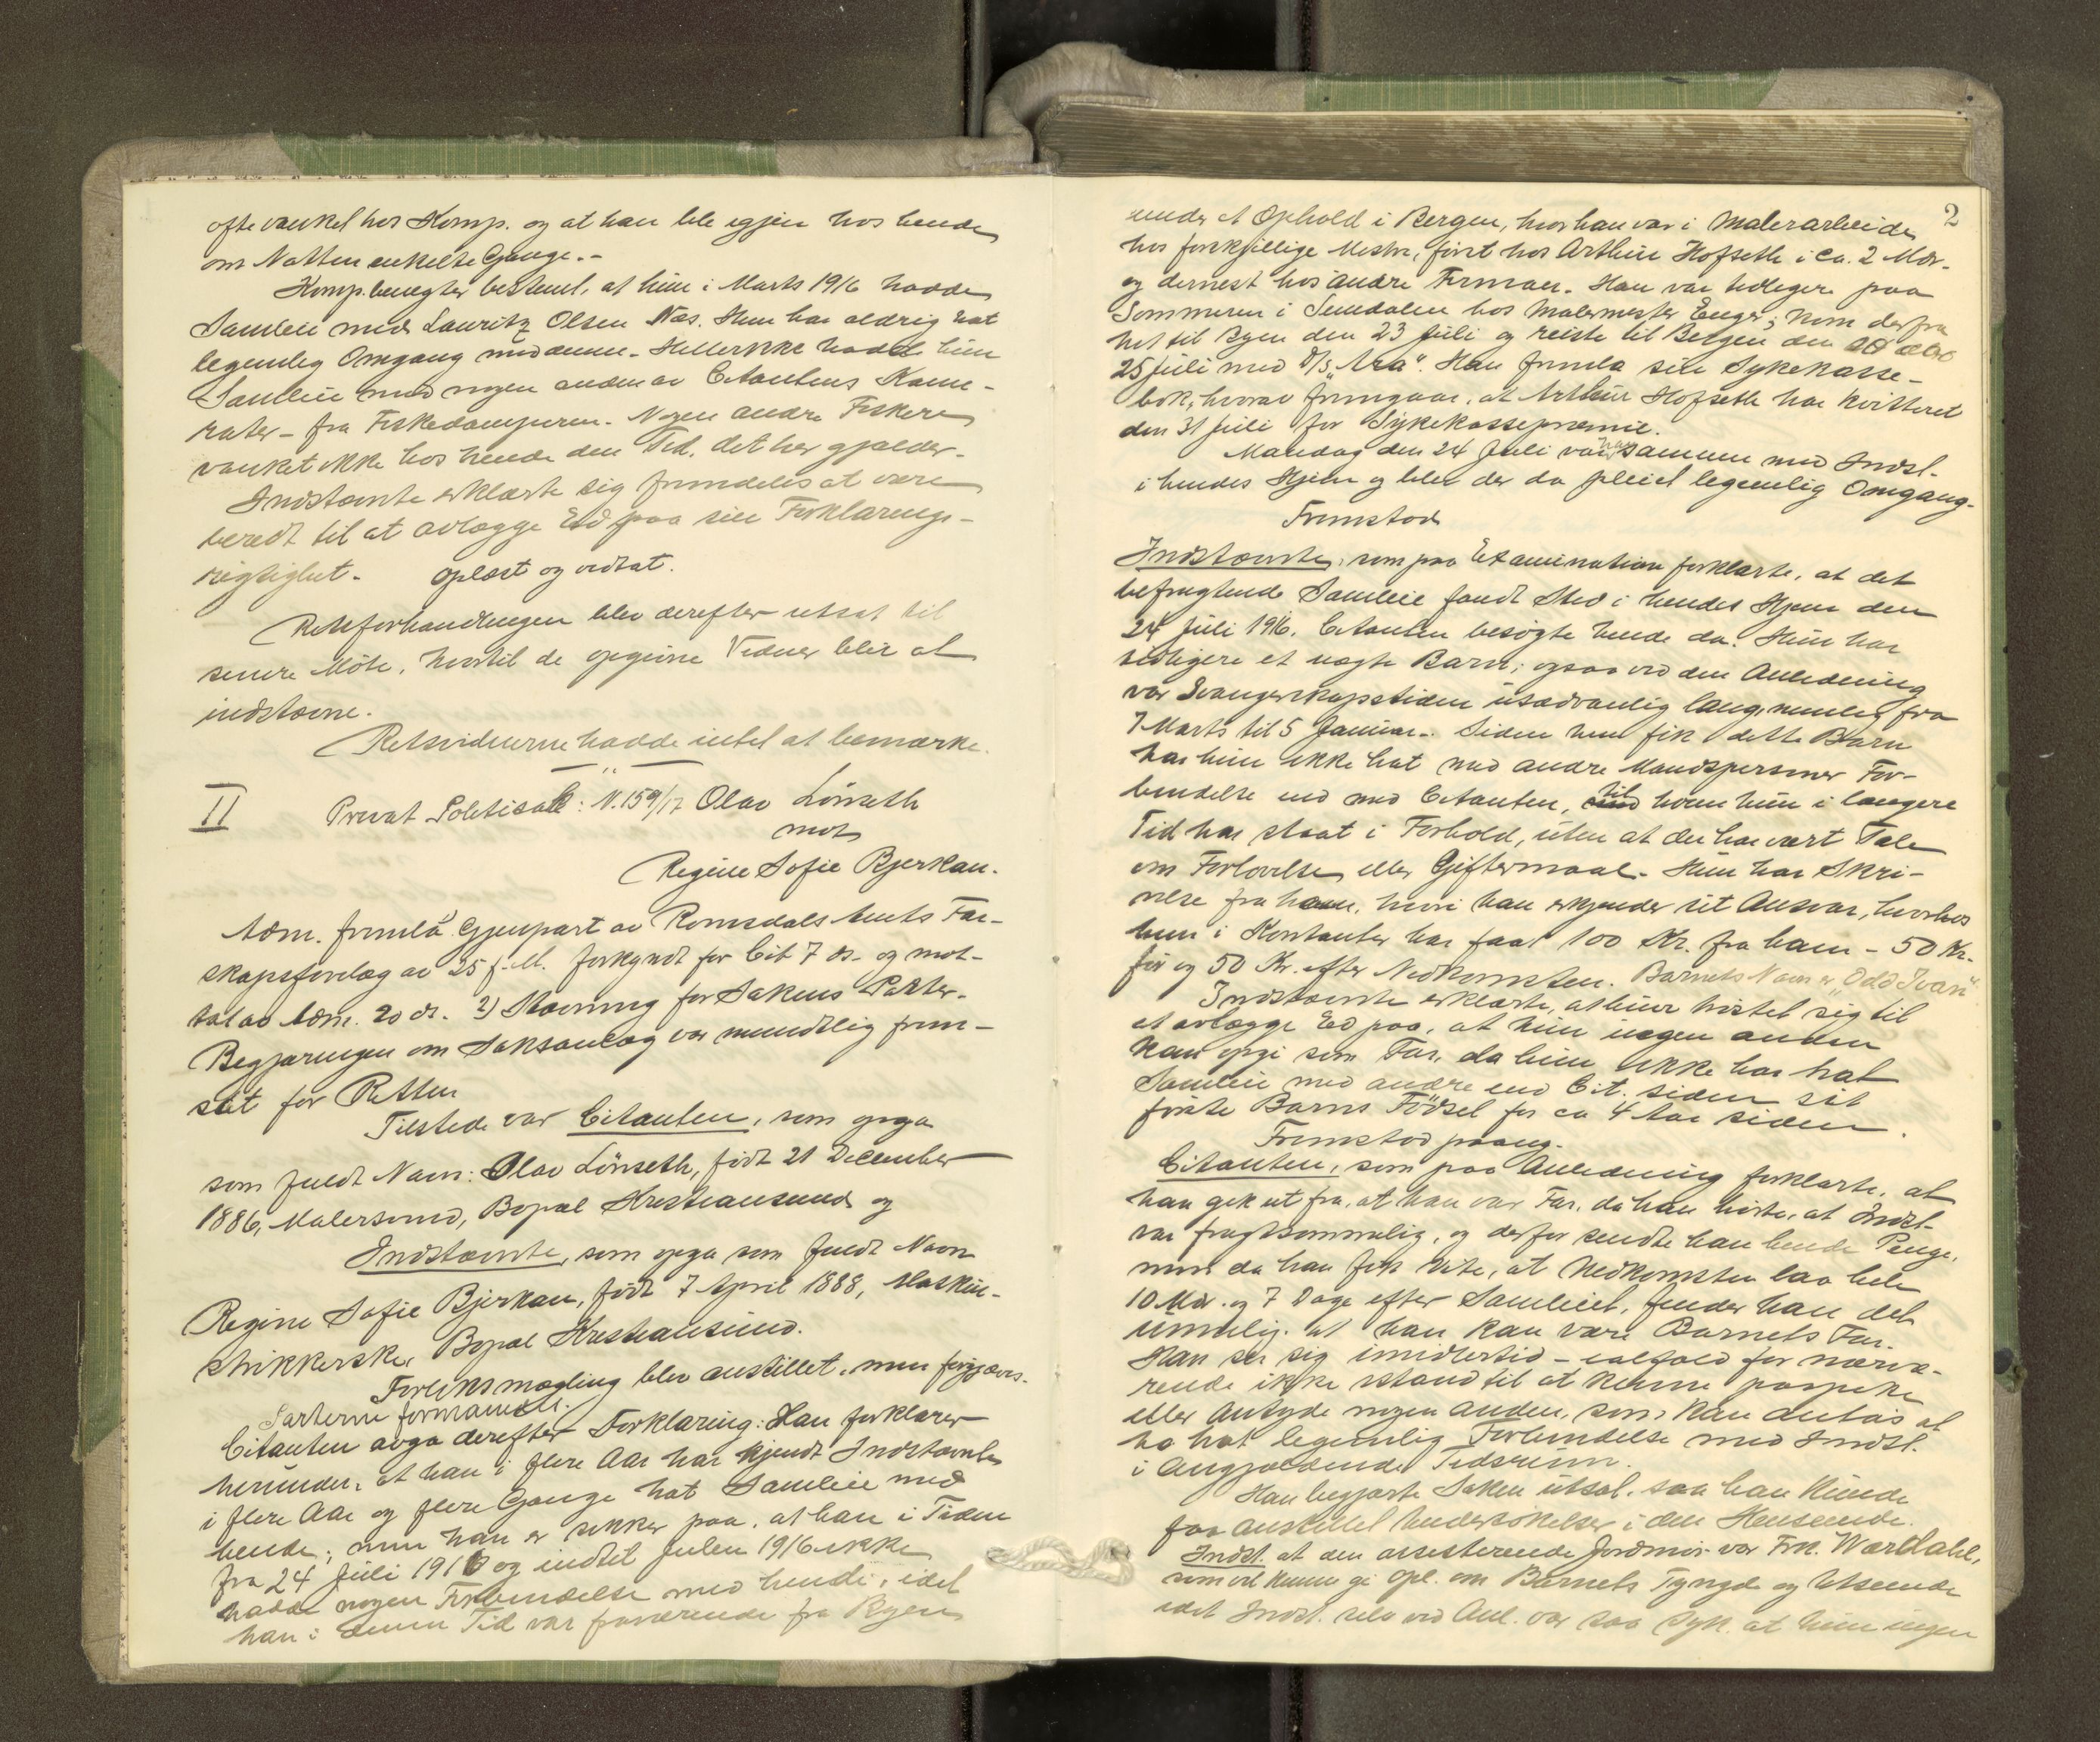 ofte vanket hos Komp. og at han ble igjen hos hende
om Natten enkelte Gange.-
Komp. benegter bestemt, at hun i Marts 1916 hadde
Samleie med Lauritz Olsen Næs. Hun har aldrig hat
legemlig Omgang med denne. Heller ikke hadde hun
Samleie med nogen anden av Citantens Kame-
rater - fra Fiskedamperen. Nogen andre Fiskere
vanket ikke hos hende den Tid, det her gjælder.
Indstævnte erklærte sig fremdeles at være
beredt til at avlægge Ed paa sin Forklarings-
rigtighet. Oplæst og vedtat.
Retsforhandlingen blev derefter utsat til
senere Møte, hvortil de opgivne Vidner blir at
indstævne.
Retsvidnerne hadde intet at bemærke.
II Privat Politisak: N. 159/17 Olav Lönseth
mot
Regine Sofie Bjerkan.
Adm. fremla 1) Gjenpart av Romsdals Amts Far-
skapsforelæg av 25 f.M. forkyndt for Cit 7 ds. og mot-
tat av Adm. 20 ds. 2) Stævning for Sakens Parter.
Begjæringen om Saksanlæg var mundtlig frem-
sat for Retten
Tilstede var Citanten, som opga
som fuldt Navn: Olav Lönseth, född 21 December
1886, Malersvend, Bopæl Kristiansund og
Indstævnte, som opga som fuldt Navn
Regine Sofie Bjerkan, född 7 April 1888, Maskin-
strikkerske, Bopæl Kristiansund.
Forliksmægling blev anstillet, men forgjæves.
Parterne formanet.
Citanten avga derefter Forklaring: Han forklarer
herunder, at han i flere Aar har kjendt Indstævnte
i flere Aar og flere Gange hat Samleie med
hende; men han er sikker paa, at han i Tiden
fra 24 Juli 1916 og indtil Julen 1916 ikke
hadde nogen Forbindelse med hende, idet
han i denne Tid var fraværende fra Byen
2
under et Ophold i Bergen, hvor han var i Malerarbeide
hos forskjellige Mestre, först hos Arthur Hofseth i ca. 2 Mdr.
og dernest hos andre Firmaer. Han var tidligere paa
Sommeren i Sundalen hos Malermester Enger; kom derfra
hit til Byen den 23 Juli og reiste til Bergen den
25 Juli med D/S "Ara". Han fremla sin Sykekasse-
bok, hvorav fremgaar, at Arthur Hofseth har kvitteret
den 31 Juli for Sykekassepræmie.
Mandag den 24 Juli var han sammen med Indst.
i hendes Hjem og blev der da pleiet legemlig Omgang.
Fremstod
Indstævnte, som paa Examination forklarte, at det
befrugtende Samleie fandt Sted i hendes Hjem den
24 Juli 1916. Citanten besøgte hende da. Hun har
tidligere et uægte Barn; ogsaa ved den Anledning
var Svangerskapstiden usedvanlig lang, nemlig fra
7 Marts til 5 Januar. Siden hun fik dette Barn
har hun ikke hat med andre Mandspersoner For-
bindelse end med Citanten, til hvem hun i længere
Tid har staat i Forhold, uten at der har vært Tale
om Forlovelse eller Giftermaal. Hun har Skri-
velse fra ham, hvori han erkjender sit Ansvar, hvorhos
hun i Kontanter har faat 100 Kr. fra ham - 50 Kr.
för og 50 Kr. efter Nedkomsten. Barnets Navn er "Odd Ivan"
Indstævnte erklærte, at hun trøstet sig til
at avlægge Ed paa, at hun ingen anden
kan opgi som Far, da hun ikke har hat
Samleie med andre end Cit. siden sit
förste Barns Födsel for ca 4 Aar siden.
Fremstod paany.
Citanten, som paa Anledning forklarte, at
han gik ut fra, at han var Far, da han hörte, at Indst.
var frugtsommelig, og derfor sendte han hende Penge,
men da han fik vite, at Nedkomsten laa hele
10 Mdr. og 7 Dage efter Samleiet, finder han det
umulig, at han kan være Barnets Far.
Han ser sig imidlertid - ialfald for nærvæ-
rende ikke istand til at kunne paapeke
eller antyde nogen anden, som kan antas at
ha hat legemlig Forbindelse med Indst.
i angjældende Tidsrum.
Han begjærte Saken utsat, saa han kunde
faa anstillet Undersökelser i den Henseende.
Indst. at den assisterende Jordmor var Frk. Wærdahl,
som vil kunne gi Opl. om Barnets Tyngde og Utseende
idet Indst. selv ved Anl. var saa syk, at hun ingen